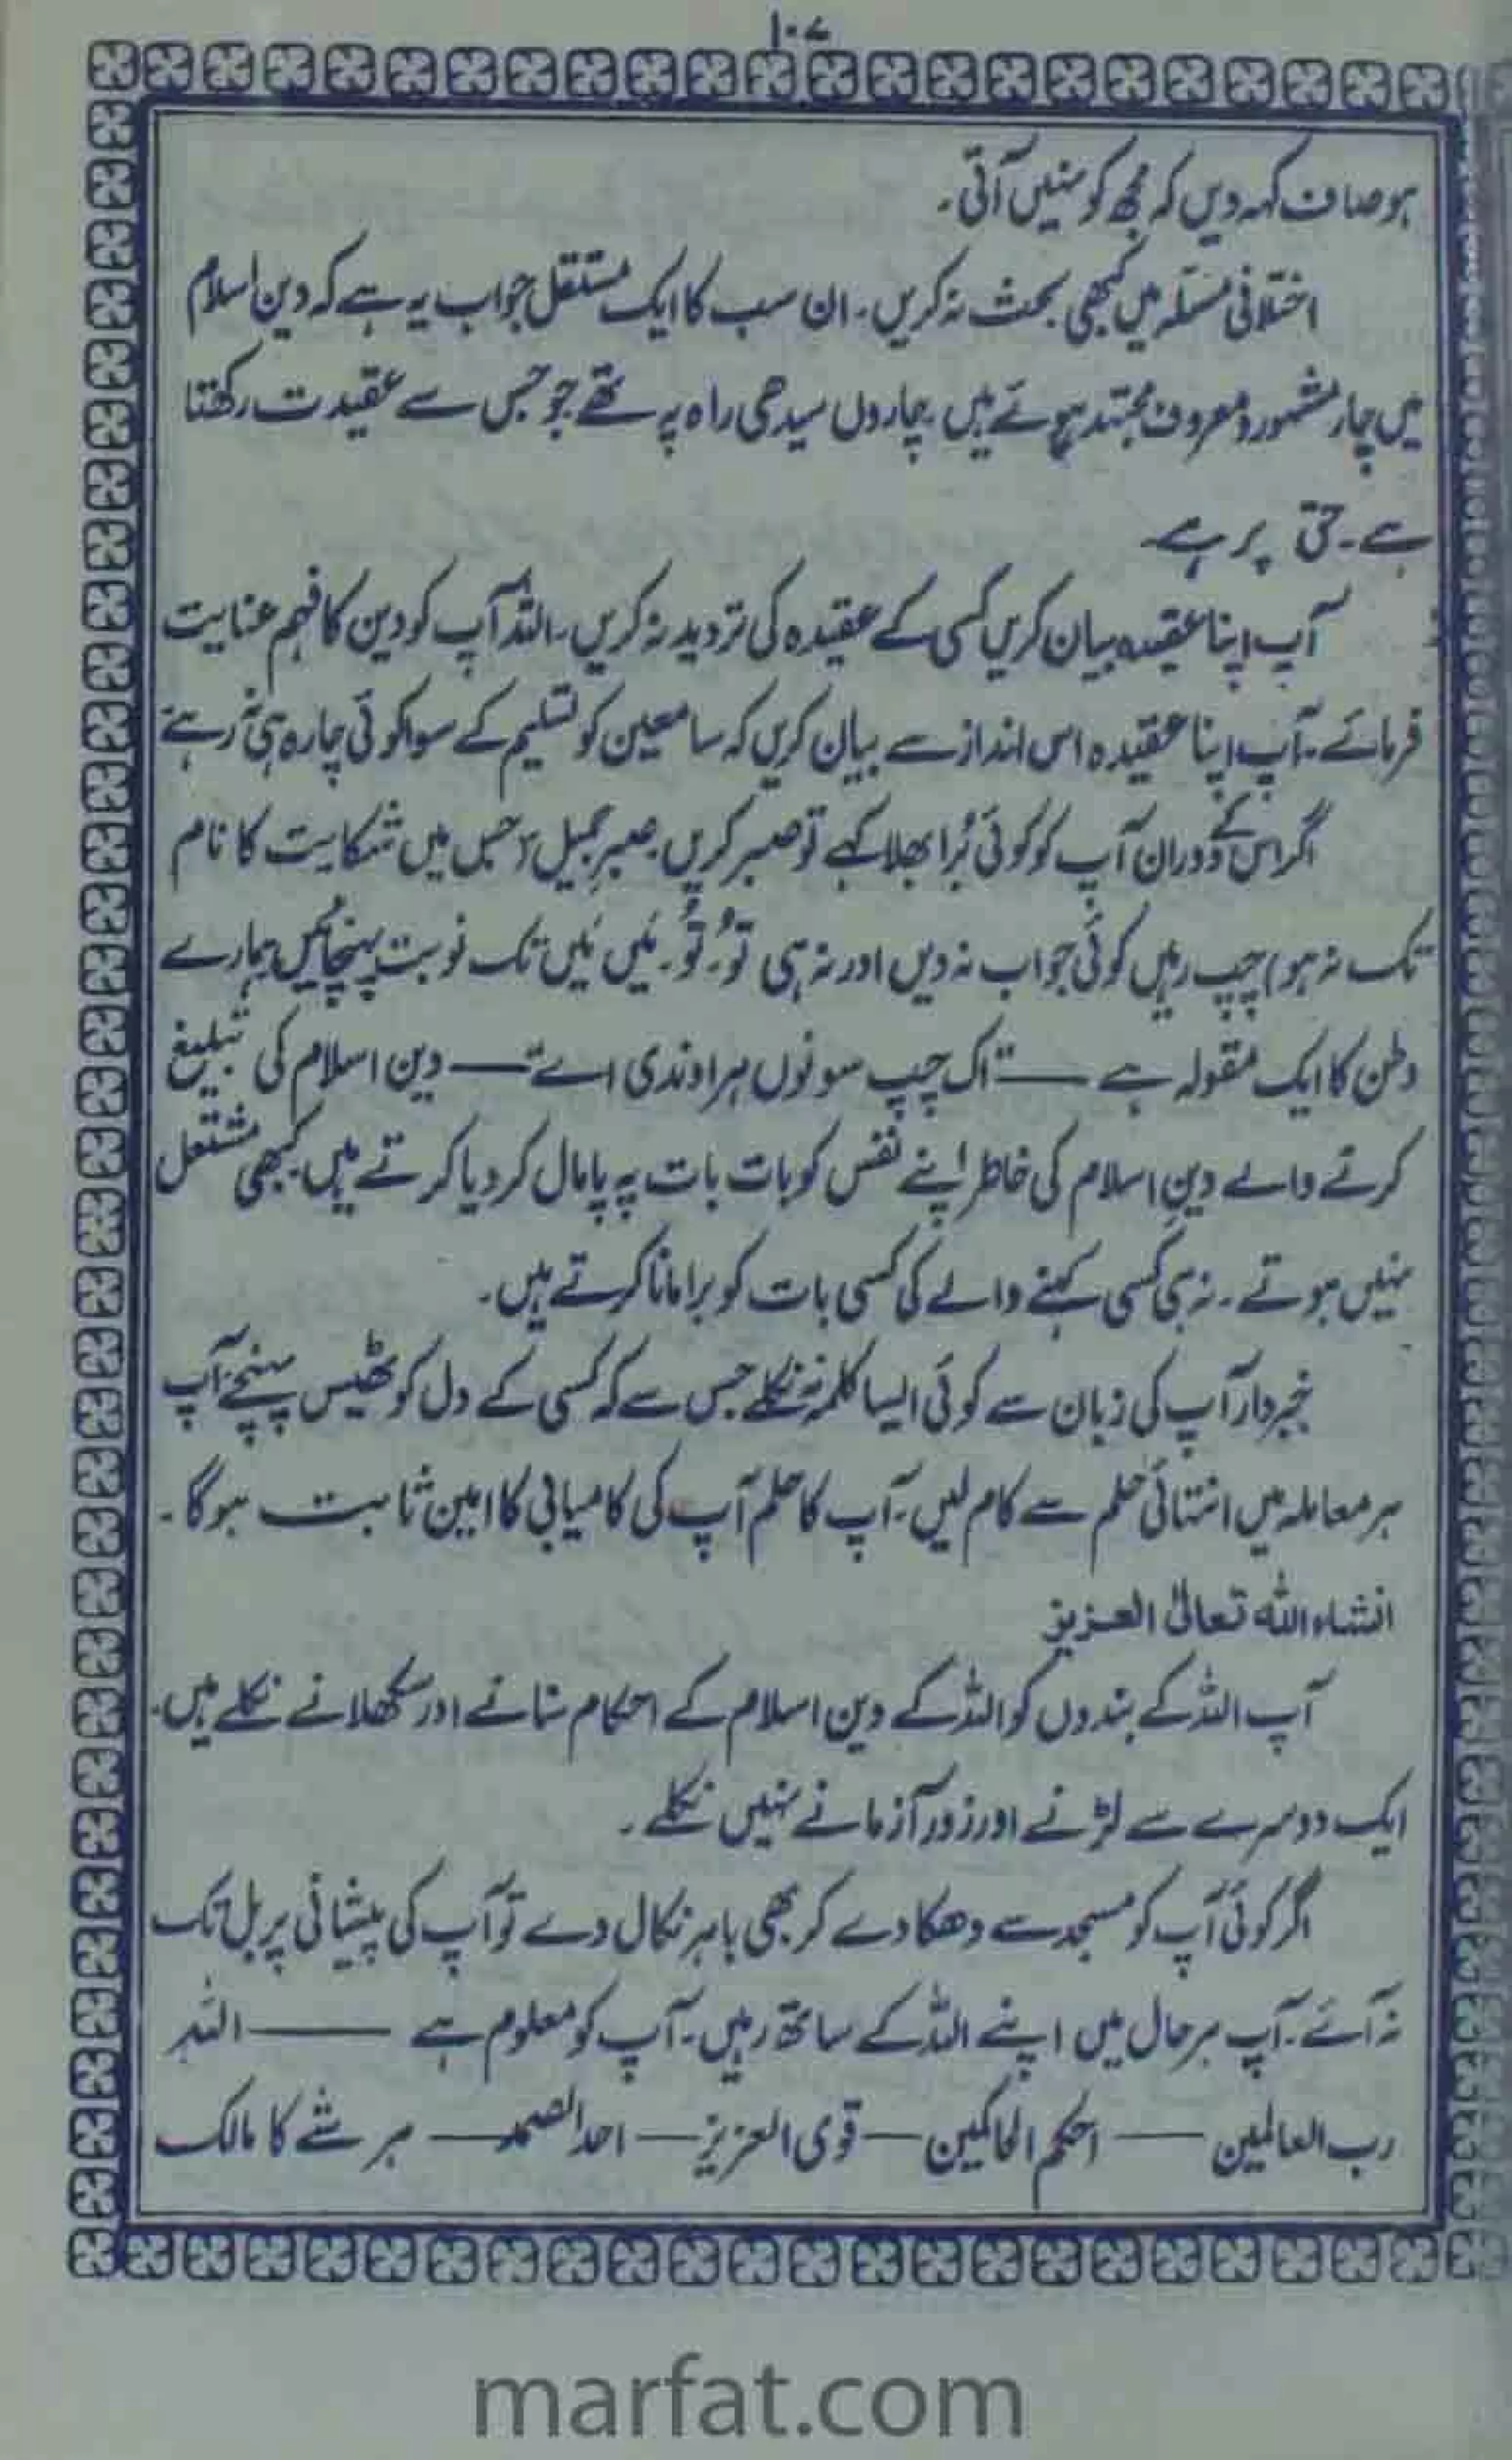 ۱۰۷
ہو صاف کہہ دیں کہ مجھ کو نہیں آتی۔
اختلافی مسئلہ میں کبھی بحث نہ کریں۔ ان سب کا ایک مستقل جواب یہ ہے کہ دین اسلام
میں چار مشہور و معروف مجتہد ہوئے ہیں۔ چاروں سیدھی راہ پہ تھے جو جس سے عقیدت رکھتا
ہے۔ حق پر ہے۔
آپ اپنا عقیدہ بیان کریں کسی کے عقیدہ کی تردید نہ کریں۔ اللہ آپ کو دین کا فہم عنایت
فرمائے۔ آپ اپنا عقیدہ اس انداز سے بیان کریں کہ سامعین کو تسلیم کے سوا کوئی چارہ ہی نہ رہے
اگر اس کے دوران آپ کو کوئی بُرا بھلا کہے تو صبر کریں صبرِ جمیل (جس میں شکایت کا نام
تک نہ ہو) چپ رہیں کوئی جواب نہ دیں اور نہ ہی تُو۔ تُو۔ مَیں مَیں تک نوبت پہنچائیں ہمارے
وطن کا ایک مقولہ ہے —— "اک چپ سو نوں ہراوندی اے" —— دین اسلام کی تبلیغ
کرتے والے دینِ اسلام کی خاطر اپنے نفس کو بات بات پہ پامال کر دیا کرتے ہیں۔ کبھی مشتعل
نہیں ہوتے۔ نہ ہی کسی کہنے والے کی کسی بات کو برا مانا کرتے ہیں۔
خبردار آپ کی زبان سے کوئی ایسا کلمہ نہ نکلے جس سے کہ کسی کے دل کو ٹھیس پہنچے۔ آپ
ہر معاملہ میں انتہائی حلم سے کام لیں۔ آپ کا حلم آپ کی کامیابی کا امین ثابت ہوگا۔
انشاء اللہ تعالیٰ العزیز
آپ اللہ کے بندوں کو اللہ کے دین اسلام کے احکام سنانے اور سکھلانے نکلے ہیں۔
ایک دوسرے سے لڑنے اور زور آزمانے نہیں نکلے۔
اگر کوئی آپ کو مسجد سے دھکا دے کر بھی باہر نکال دے تو آپ کی پیشانی پر بل تک
نہ آئے۔ آپ ہر حال میں اپنے اللہ کے ساتھ رہیں۔ آپ کو معلوم ہے —— اللہ
رب العالمین —— احکم الحاکمین —— قوی العزیز —— احد الصمد —— ہر شے کا مالک
marfat.com